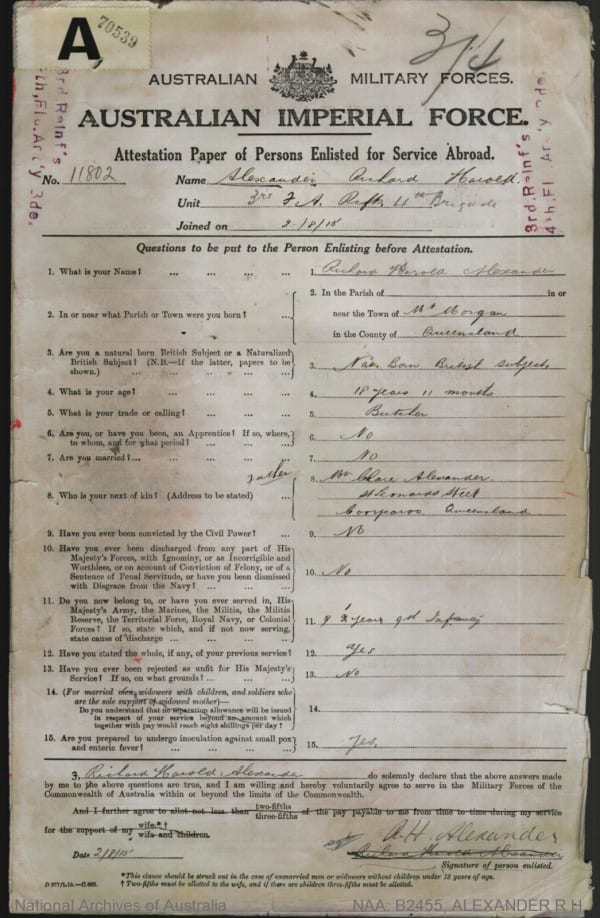 A
70539
3/4
3rd. Reinf's
4th. Fl. Art'y Bde.
3rd. Reinf's
4th. Fl. Art'y Bde.
AUSTRALIAN MILITARY FORCES.
AUSTRALIAN IMPERIAL FORCE.
Attestation Paper of Persons Enlisted for Service Abroad.
No. 11802 Name Alexander Richard Harold.
Unit 3rd F.A. Refts 4th Brigade
Joined on 2/8/15
Questions to be put to the Person Enlisting before Attestation.
1. What is your Name? ... ... ... ... 1. Richard Harold Alexander
2. In or near what Parish or Town were you born? ...
2. In the Parish of in or
near the Town of Mt Morgan
in the County of Queensland
3. Are you a natural born British Subject or a Naturalized
British Subject? (N.B.—If the latter, papers to be
shown.) ... ... ... ... ...
3. Nat. Born British subject
4. What is your age? ... ... ... ... 4. 18 years 11 months
5. What is your trade or calling? ... ... ... 5. Butcher
6. Are you, or have you been, an Apprentice? If so, where,
to whom, and for what period? ... ... ...
6. No
7. Are you married? ... ... ... ... ... 7. No
father
8. Who is your next of kin? (Address to be stated) ...
8. Mr Clare Alexander.
St Leonards Street
Coorparoo Queensland
9. Have you ever been convicted by the Civil Power? ... 9. No
10. Have you ever been discharged from any part of His
Majesty's Forces, with Ignominy, or as Incorrigible and
Worthless, or on account of Conviction of Felony, or of a
Sentence of Penal Servitude, or have you been dismissed
with Disgrace from the Navy? ... ... ...
10. No
11. Do you now belong to, or have you ever served in, His
Majesty's Army, the Marines, the Militia, the Militia
Reserve, the Territorial Force, Royal Navy, or Colonial
Forces? If so, state which, and if not now serving,
state cause of discharge ... ... ... ...
11. years Infantry
12. Have you stated the whole, if any, of your previous service? 12. Yes
13. Have you ever been rejected as unfit for His Majesty's
Service? If so, on what grounds? ... ... ...
13. No
14. (For married men, widowers with children, and soldiers who
are the sole support of widowed mother)—
Do you understand that no separation allowance will be issued
in respect of your service beyond an amount which
together with pay would reach eight shillings per day?
14.
15. Are you prepared to undergo inoculation against small pox
and enteric fever? ... ... ... ...
15. Yes.
I, Richard Harold Alexander do solemnly declare that the above answers made
by me to the above questions are true, and I am willing and hereby voluntarily agree to serve in the Military Forces of the
Commonwealth of Australia within or beyond the limits of the Commonwealth.
And I further agree to allot not less than two-fifths three-fifths of the pay payable to me from time to time during my service
for the support of my wife.*† wife and children.
R H Alexander
Richard Harold Alexander
Date 2/8/15
Signature of person enlisted.
*This clause should be struck out in the case of unmarried men or widowers without children under 18 years of age.
† Two-fifths must be allotted to the wife, and if there are children three-fifths must be allotted.
National Archives of Australia
NAA: B2455, ALEXANDER R H